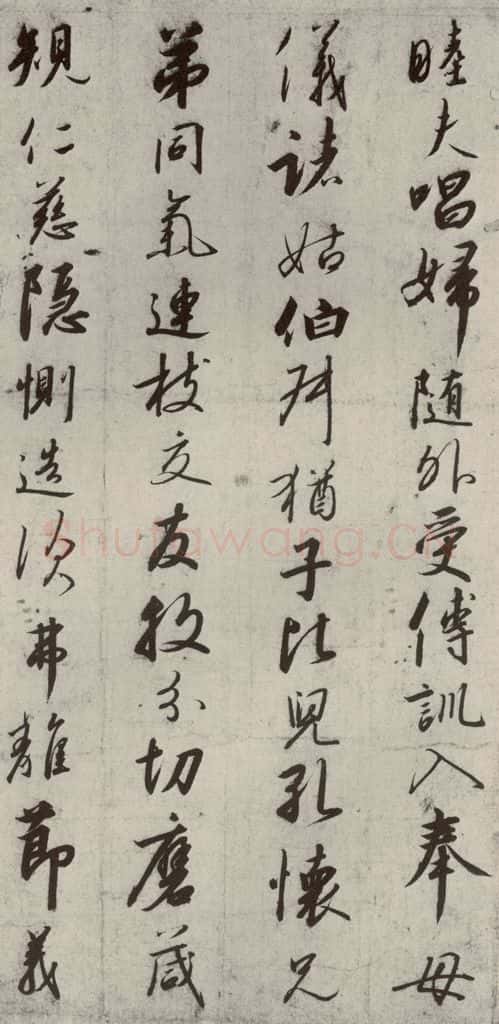 睦夫唱婦随外受傅訓入奉母
儀諸姑伯叔猶子比兒孔懷兄
弟同氣連枝交友投分切磨箴
規仁慈隱惻造次弗離節義
Shufawang.cn